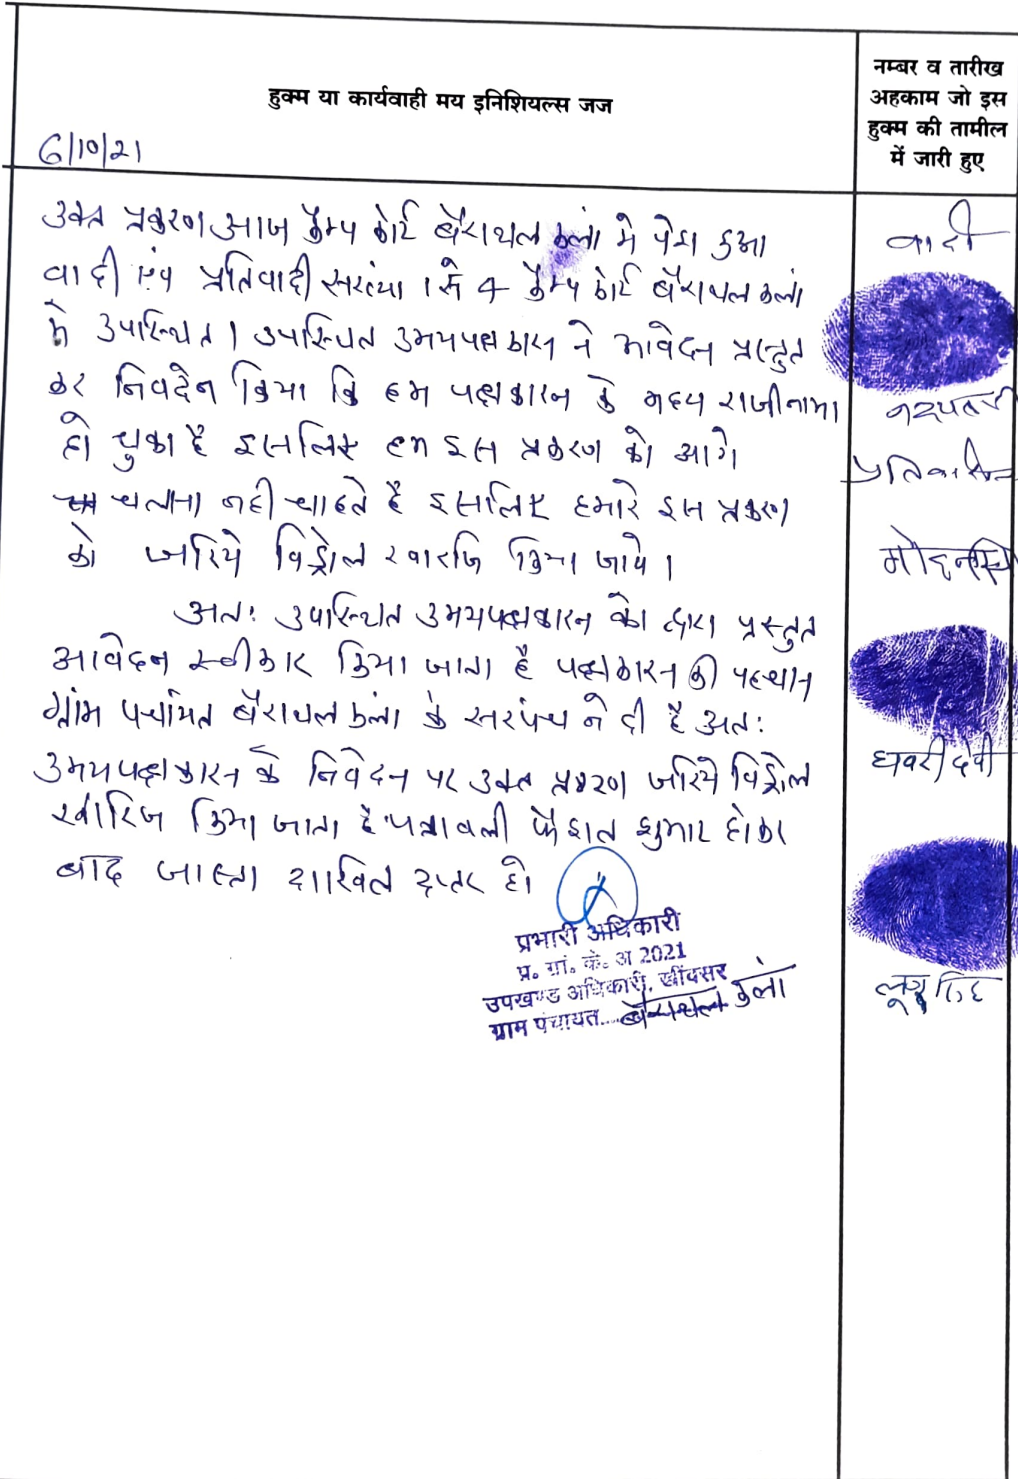 हुक्म या कार्यवाही मय इनिशियल्स जज
नम्बर व तारीख
अहकाम जो इस
हुक्म की तामील
में जारी हुए
6/10/21
उक्त प्रकरण आज कैम्प कोर्ट बैराथल कलां मे पेश हुआ
वादी एंव प्रतिवादी सरंख्या 1 से 4 कैम्प कोर्ट बैराथल कलां
मे उपास्थित। उपास्थित उभयपक्षकारान ने आवेदन प्रस्तुत
कर निवदेन किया कि हम पक्षकारान के मध्य राजीनामा
हो चुका है इसलिए हम इस प्रकरण को आगे
चलाना नही चाहते है इसलिए हमारे इस प्रकरण
को जरिये विड्रोल खारजि किया जावे।
अतः उपास्थित उभयपक्षकारान के द्वारा प्रस्तुत
आवेदन स्वीकार किया जाता है पक्षकारान की पहचान
ग्रांम पंचायत बैराथल कंला के सरपंच ने दी है अतः
उभयपक्षकारान के निवेदन पर उक्त प्रकरण जरिये विड्रोल
खारिज किया जाता है पत्रावली फैशल शुमार होकर
बाद जाब्ता दाखिल दफ्तर हो।
प्रभारी अधिकारी
प्र. गां. के. अ 2021
उपखण्ड अधिकारी, खींवसर
ग्राम पंचायत.... बैराथल कलां
वादी
प्रतिवादीगण
मोहनसिंह
घवरी देवी